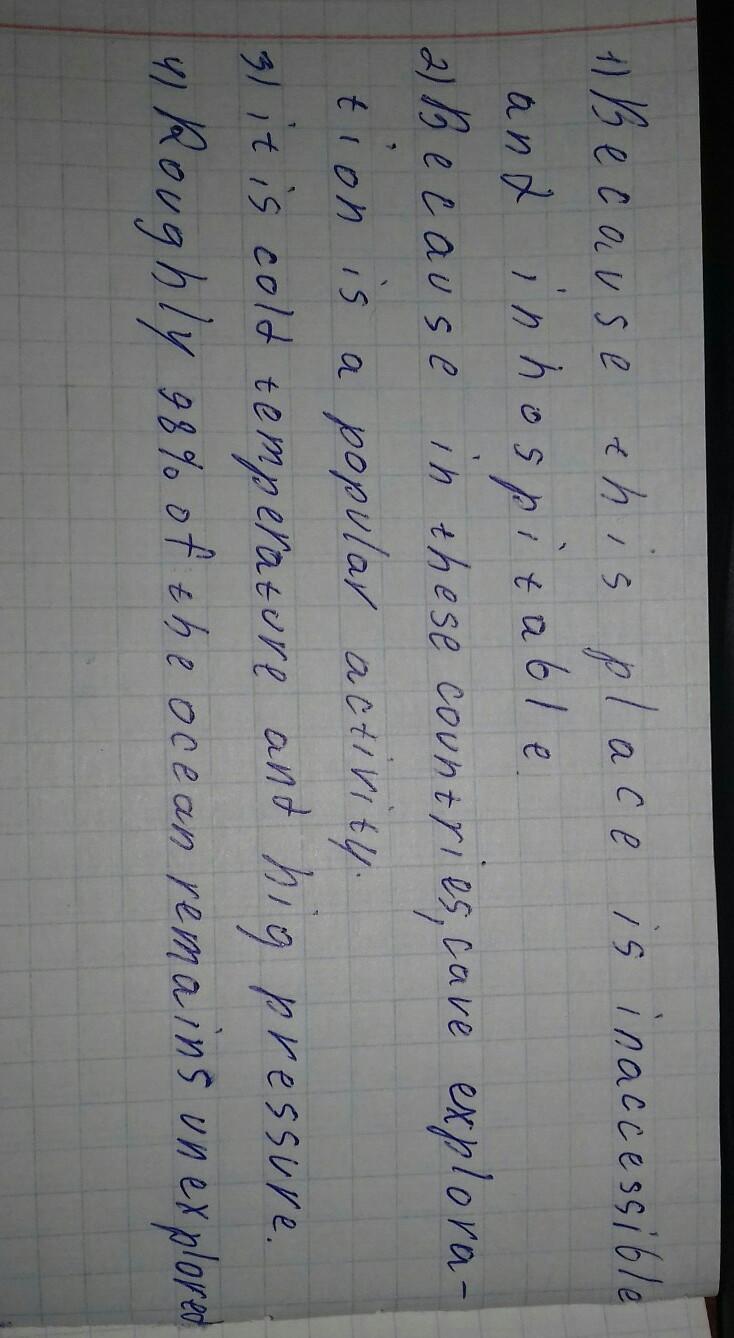 1) Because this place is inaccessible
and inhospitable
2) Because in these countries, cave explora-
tion is a popular activity.
3) it is cold temperature and hig pressure.
4) Roughly 98% of the ocean remains unexplored